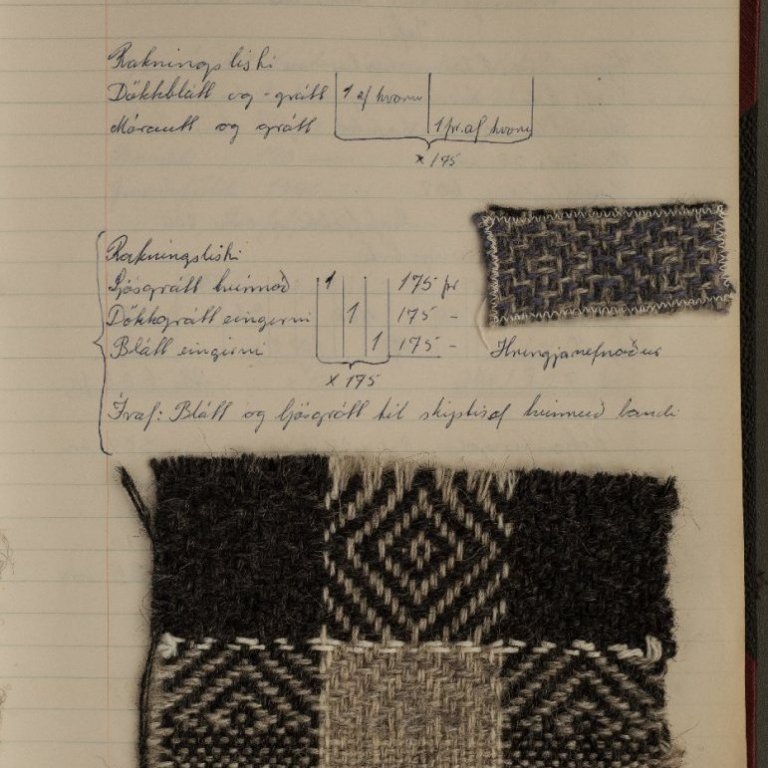 Rakningslisti
Dökkblátt og -grátt 1 af hvoru
Mórautt og grátt 1 pr. af hvoru
x 175
Rakningslisti
Ljósgrátt 1 175 pr
Dökkgrátt eingirni 1 175 -
Blátt eingirni 1 175 -
x 175
Hringjanefnodur
Ívaf: Blátt og ljósgrátt til skiptis af bandi